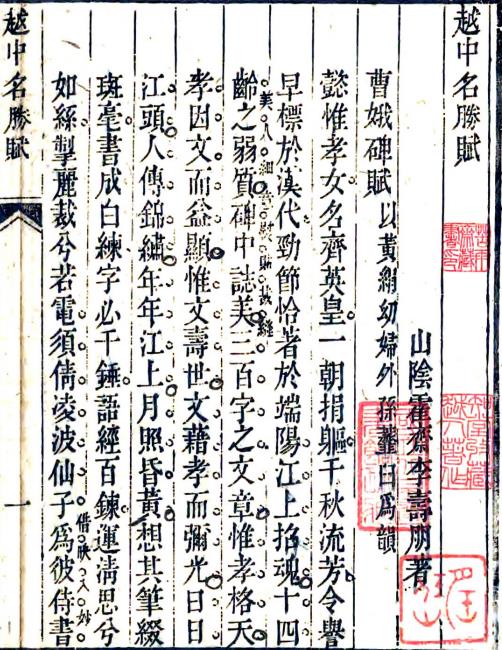 越中名勝賦
山陰霍齋李壽朋著
曹娥碑賦 以黃絹幼婦外孫虀臼爲韻
懿惟孝女名齊英皇一朝捐軀千秋流芳令譽
早標於漢代勁節恰著於端陽江上招魂十四
美人細意熨貼裁縫
齡之弱質碑中誌美三百字之文章惟孝格天
孝因文而益顯惟文壽世文藉孝而彌光日日
江頭人傳錦繡年年江上月照昏黃想其筆綴
斑毫書成白練字必千錘語經百鍊運淸思兮
如絲掣麗裁兮若電須倩凌波仙子爲彼侍書
借映入妙
越中名勝賦
一